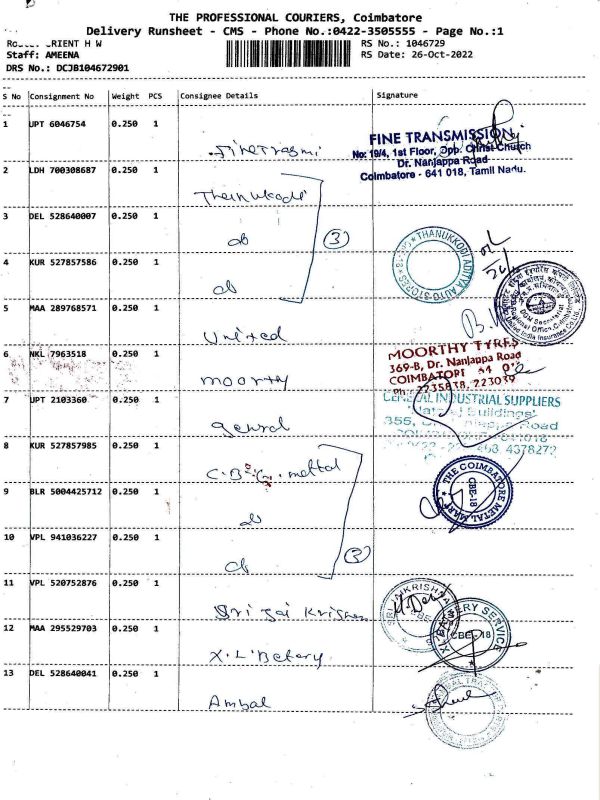 THE PROFESSIONAL COURIERS, Coimbatore
Delivery Runsheet - CMS - Phone No.:0422-3505555 - Page No.:1
RIENT H W RS No.: 1046729
Staff: AMEENA RS Date: 26-Oct-2022
DRS No.: DCJB104672901
S No Consignment No Weight PCS Consignee Details Signature
1 UPT 6046754 0.250 1
FINE TRANSMISSION
No: 19/4, 1st Floor, Opp. Christ Church
Dr. Nanjappa Road
Coimbatore - 641 018, Tamil Nadu.
2 LDH 700308687 0.250 1 Thanukodi
3 DEL 528640007 0.250 1 do (3)
THANUKKODI ADITYA AUTO STORES * CBE-18 *
4 KUR 527857586 0.250 1 do
5 MAA 289768571 0.250 1 United
DGM Secretariat
Regional Office, Coimbatore
United India Insurance Co. Ltd
6 NKL 7963518 0.250 1 moorthy
MOORTHY TYRES
369-B, Dr. Nanjappa Road
COIMBATORE
Ph: 2235838, 223039
7 UPT 2103360 0.250 1 genral
GENERAL INDUSTRIAL SUPPLIERS
Buildings'
355, Road
4378272
8 KUR 527857985 0.250 1 C.B.E. mettal
9 BLR 5004425712 0.250 1 do
THE COIMBATORE METAL MART
CBE-18
10 VPL 941036227 0.250 1 do
11 VPL 520752876 0.250 1 Sri Jai Krishna
12 MAA 295529703 0.250 1 X.L. Betery
XL BATTERY SERVICE
CBE - 18
13 DEL 528640041 0.250 1 Ambal